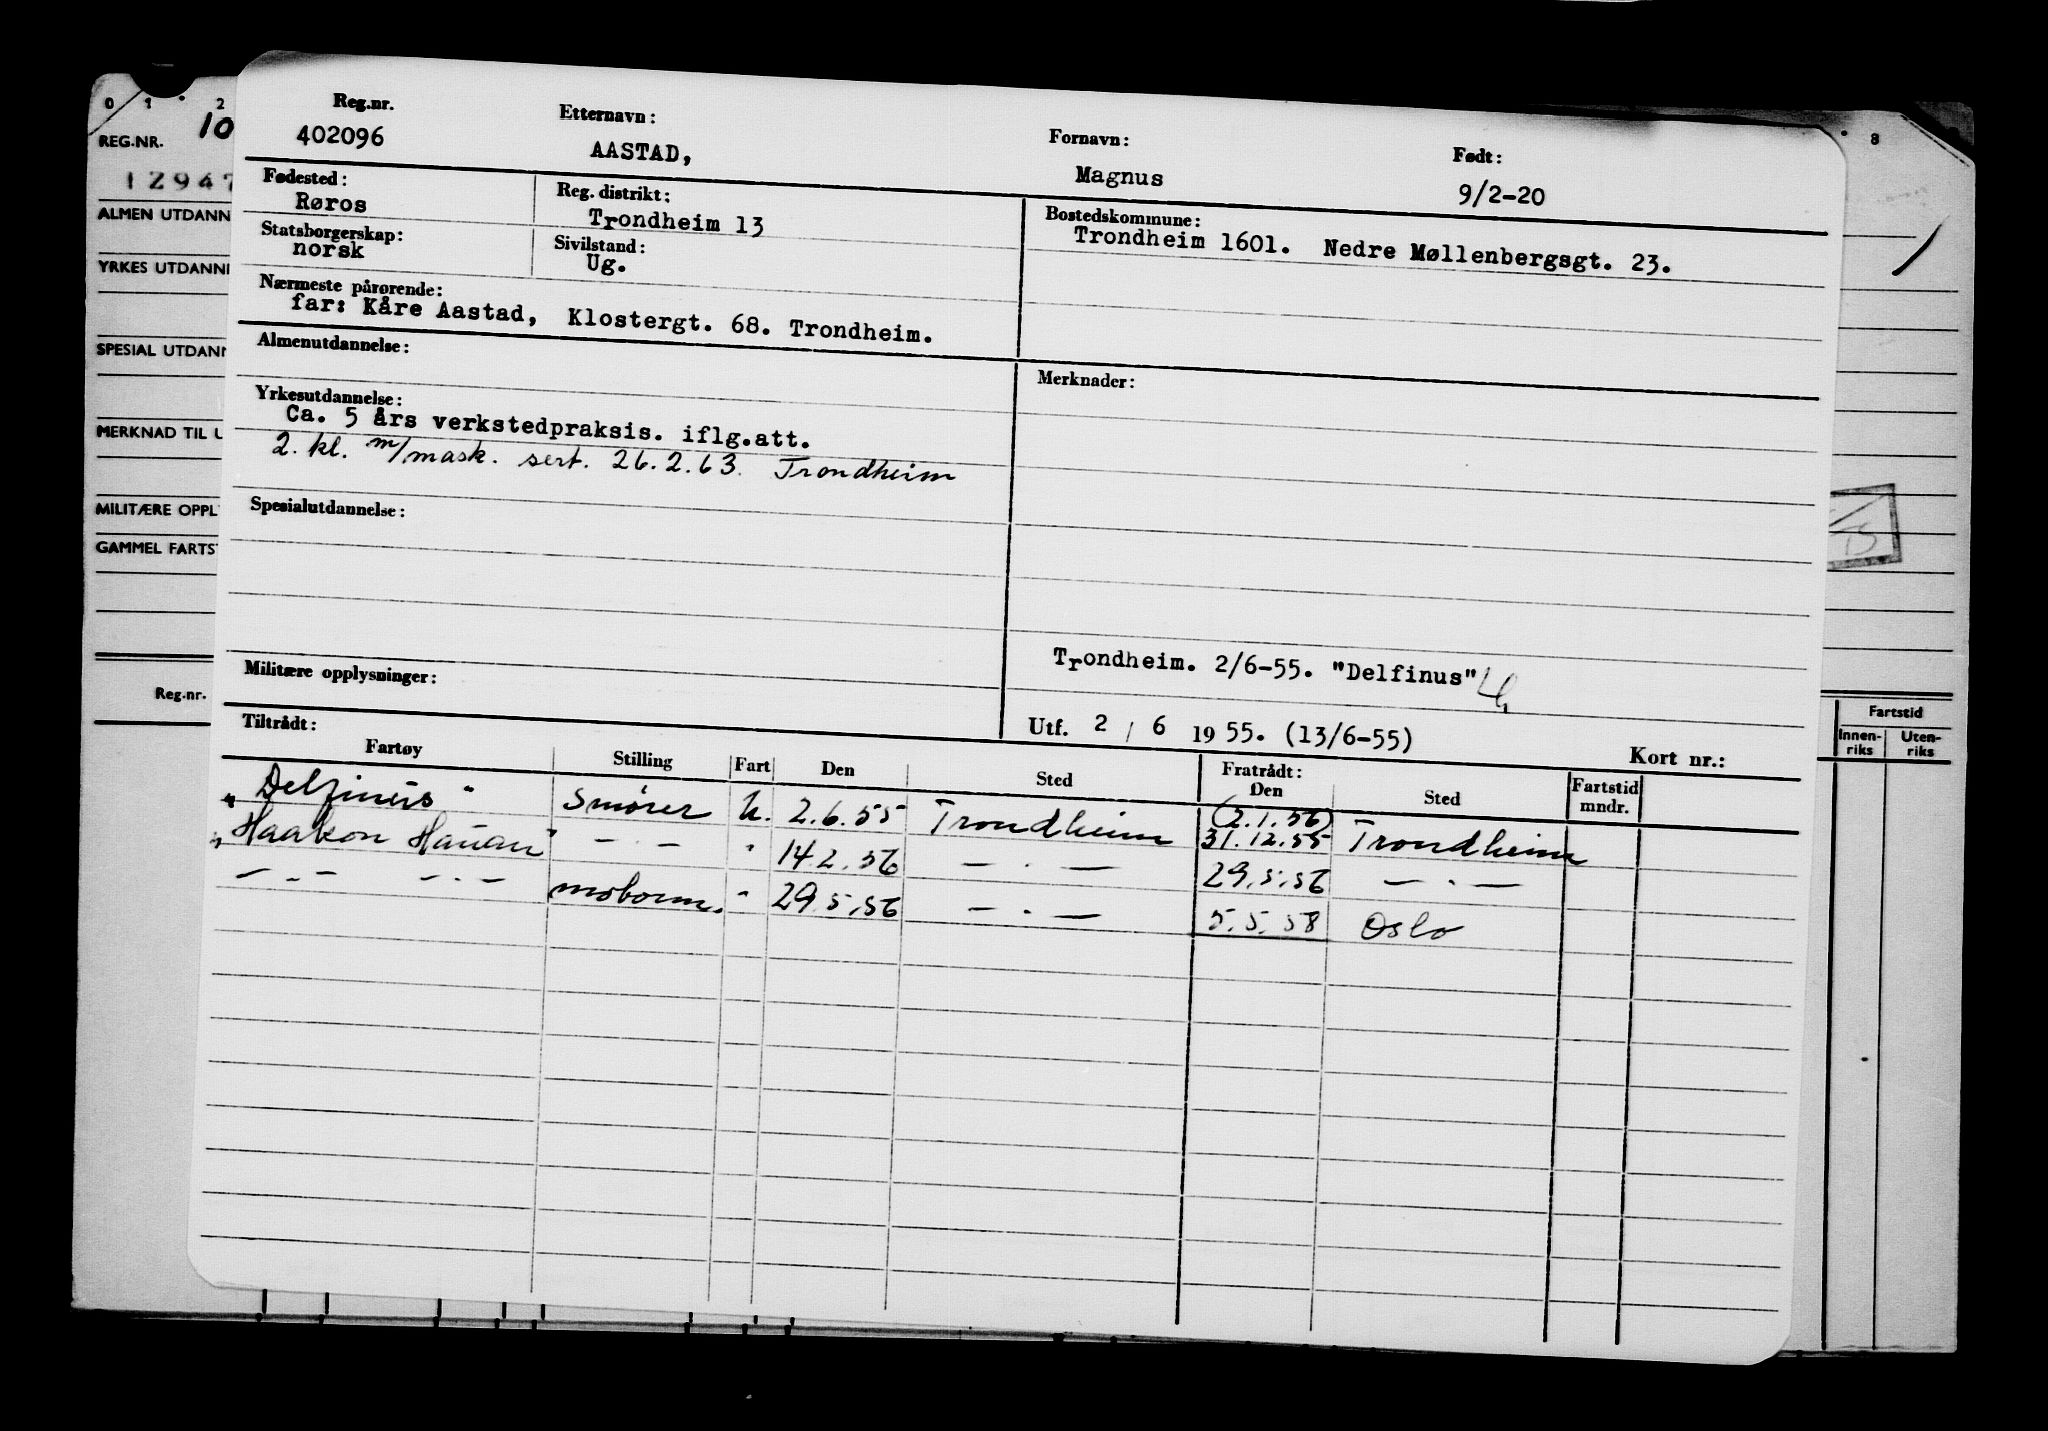 0 1 2 8
REG.NR. 10
12947
ALMEN UTDANN
YRKES UTDANNI
SPESIAL UTDANN
MERKNAD TIL U
MILITÆRE OPPL
GAMMEL FARTST
Reg.nr.
Fartstid
Innen-riks Uten-riks
Reg.nr. Etternavn: Fornavn: Født:
402096 AASTAD, Magnus 9/2-20
Fødested: Reg. distrikt: Bostedskommune:
Røros Trondheim 13 Trondheim 1601. Nedre Møllenbergsgt. 23.
Statsborgerskap: Sivilstand:
norsk Ug.
Nærmeste pårørende:
far: Kåre Aastad, Klostergt. 68. Trondheim.
Almenutdannelse: Merknader:
Yrkesutdannelse:
Ca. 5 års verkstedpraksis. iflg.att.
2. kl. m/mask. sert. 26.2.63. Trondheim
Spesialutdannelse:
Trondheim. 2/6-55. "Delfinus"
Militære opplysninger:
Utf. 2 / 6 1955. (13/6-55) Kort nr.:
Tiltrådt: Fratrådt:
Fartøy Stilling Fart Den Sted Den Sted Fartstid mndr.
(2.1.56)
"Delfinus" Smører U. 2.6.55 Trondheim 31.12.55 Trondheim
"Haakon Hauan" — · — " 14.2.56 — · — 29.5.56 — · —
— · — — · — motorm. " 29.5.56 — · — 5.5.58 Oslo